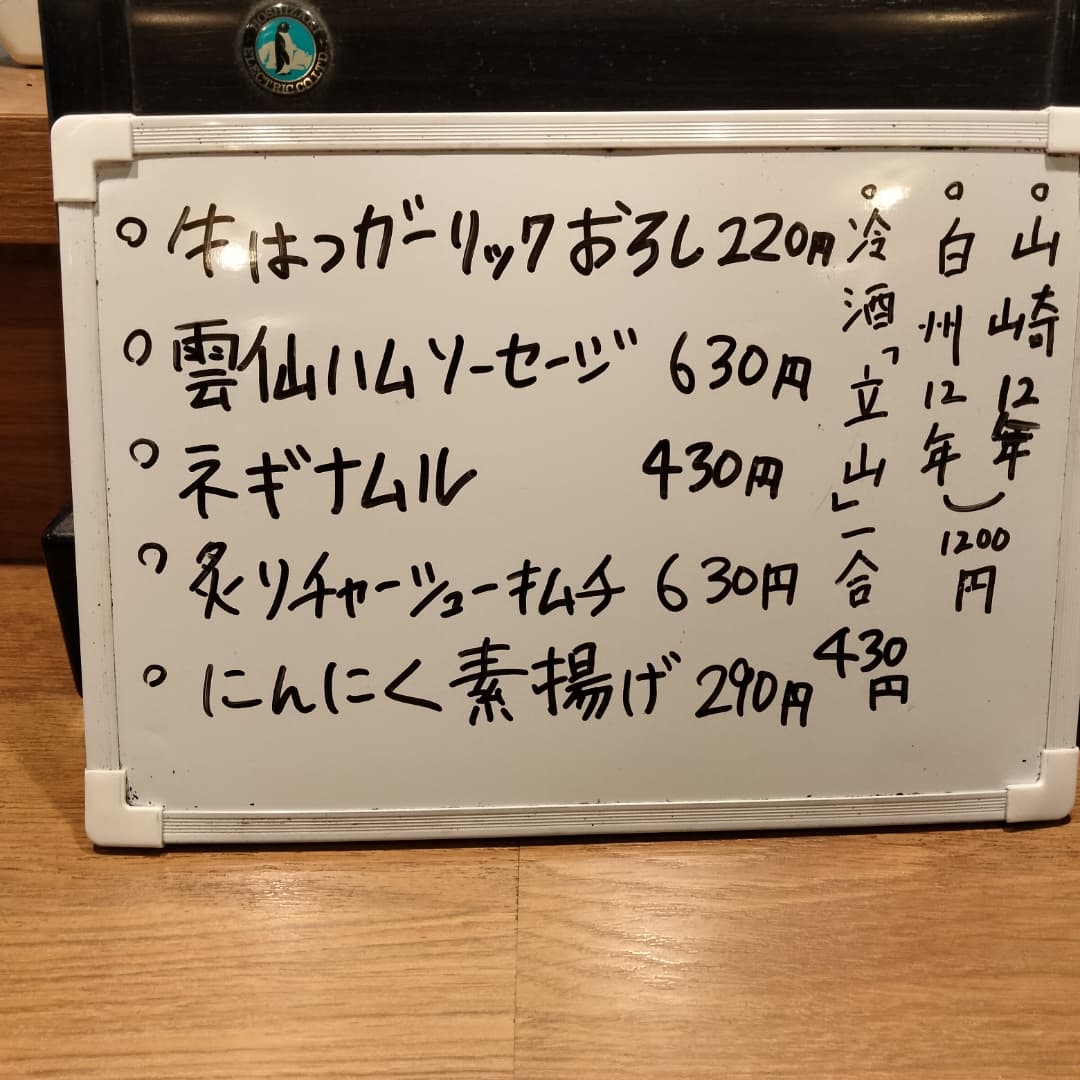 HOSHIZAKI ELECTRIC CO., LTD.
○ 牛はつガーリックおろし 220円
○ 雲仙ハムソーセージ 630円
○ ネギナムル 430円
○ 炙りチャーシューキムチ 630円
○ にんにく素揚げ 290円
○山崎12年
○白州12年
1200円
○冷酒「立山」一合 430円